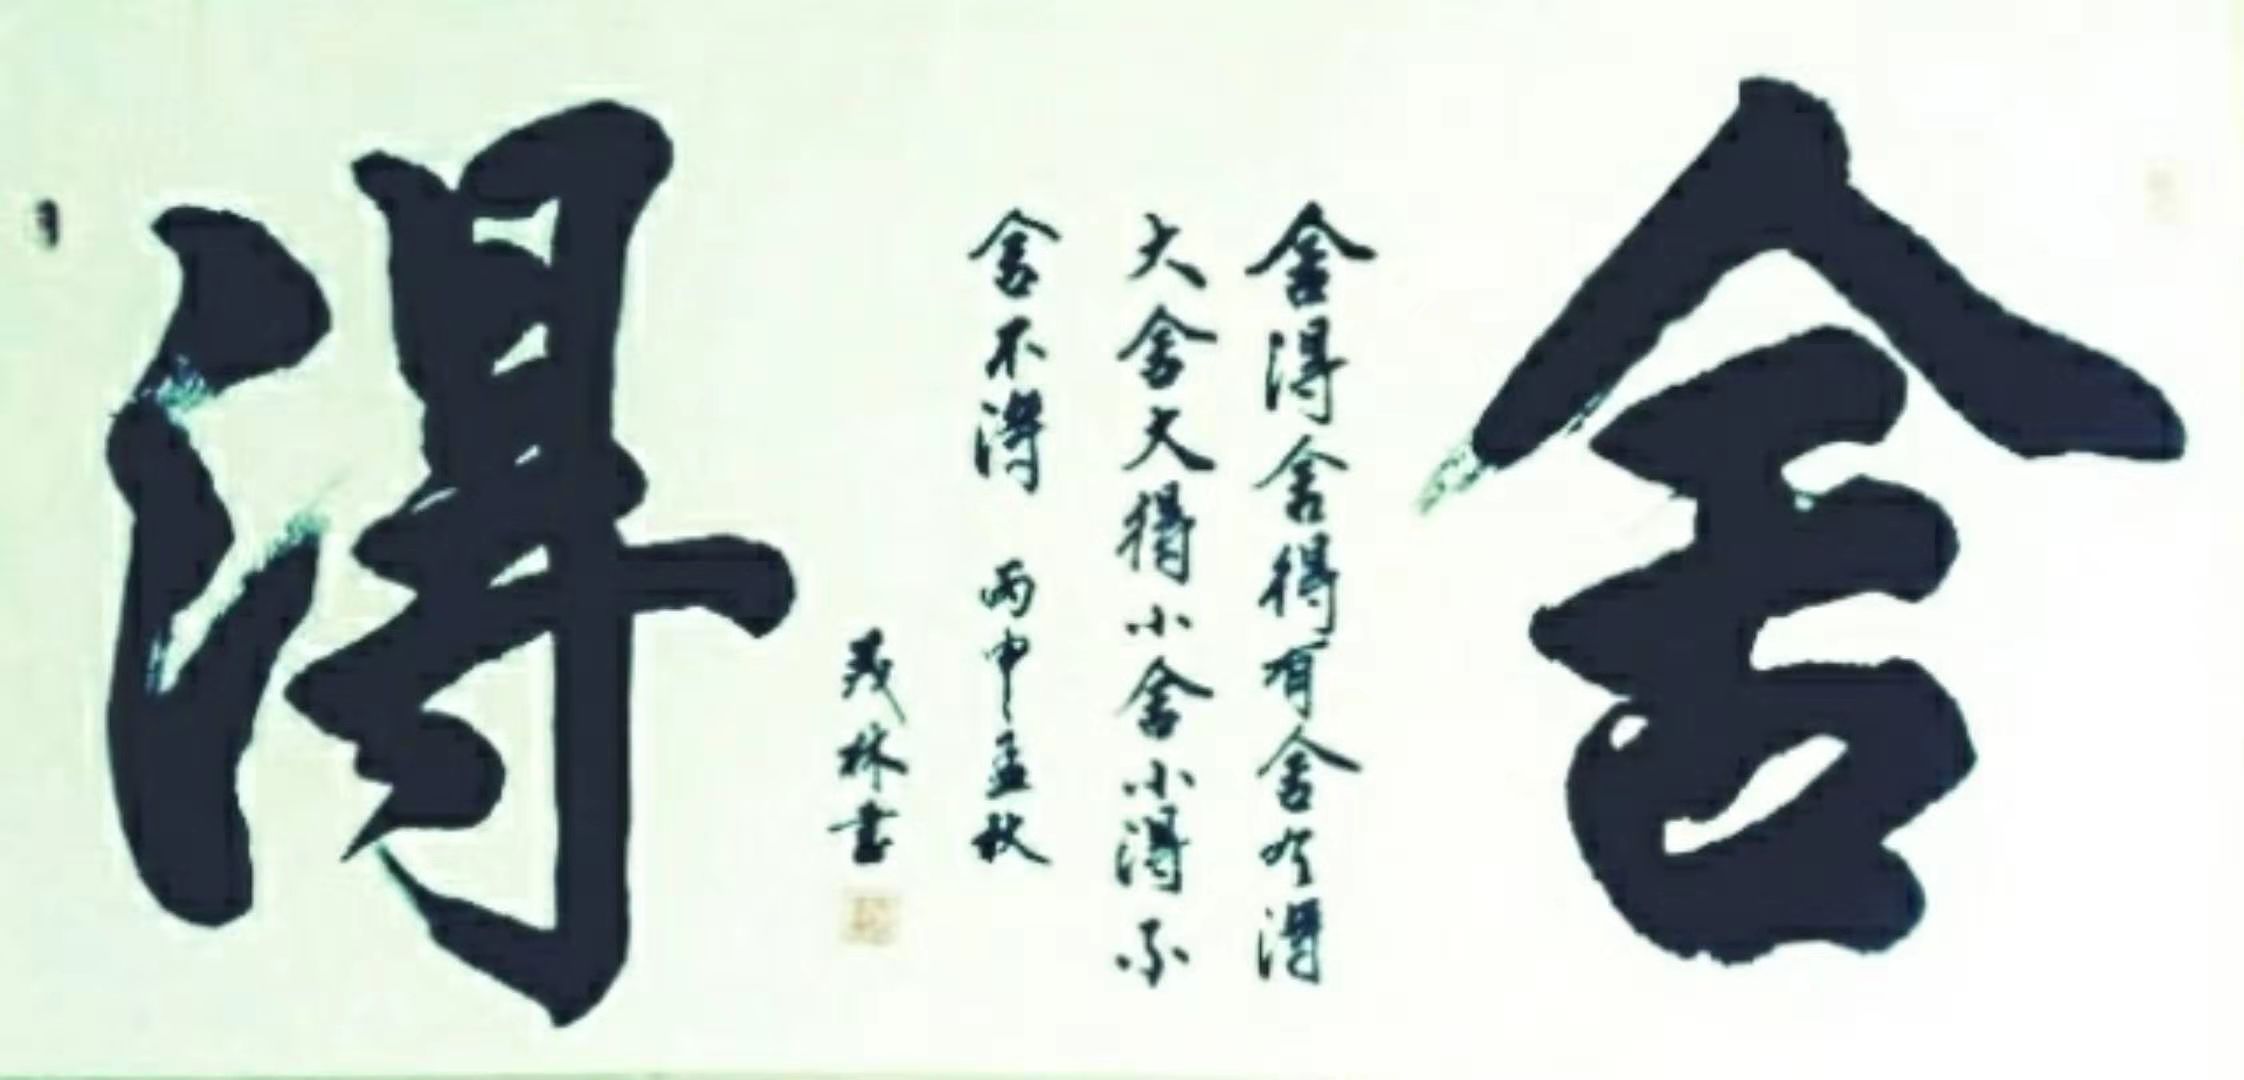 舍
舍得舍得有舍才得
大舍大得小舍小得不
舍不得 丙申孟秋
茂林书
得